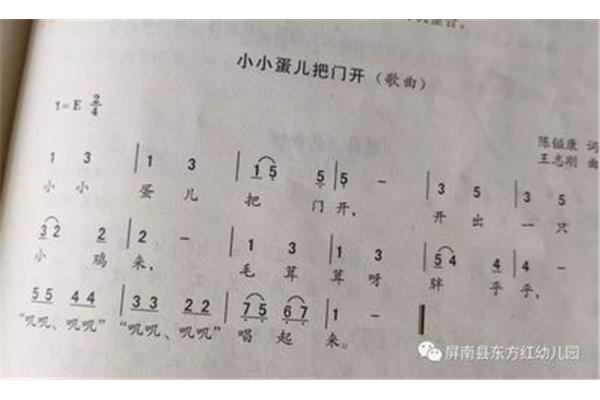 小小蛋儿把门开（歌曲）
1=E 2/4
陈镒康 词
王志刚 曲
1 3 | 1 3 | 1 5 5 | 5 - | 3 5 | 3 5
小 小 蛋 儿 把 门 开， 开 出 一 只
3 2 2 | 2 - | 1 3 | 1 3 | 5 4 4 | 4 -
小 鸡 来， 毛 茸 茸 呀 胖 乎 乎，
5 5 4 4 | 3 3 2 2 | 7 5 6 7 | 1 - ‖
“叽叽、叽叽” “叽叽、叽叽” 唱 起 来。
屏南县东方红幼儿园